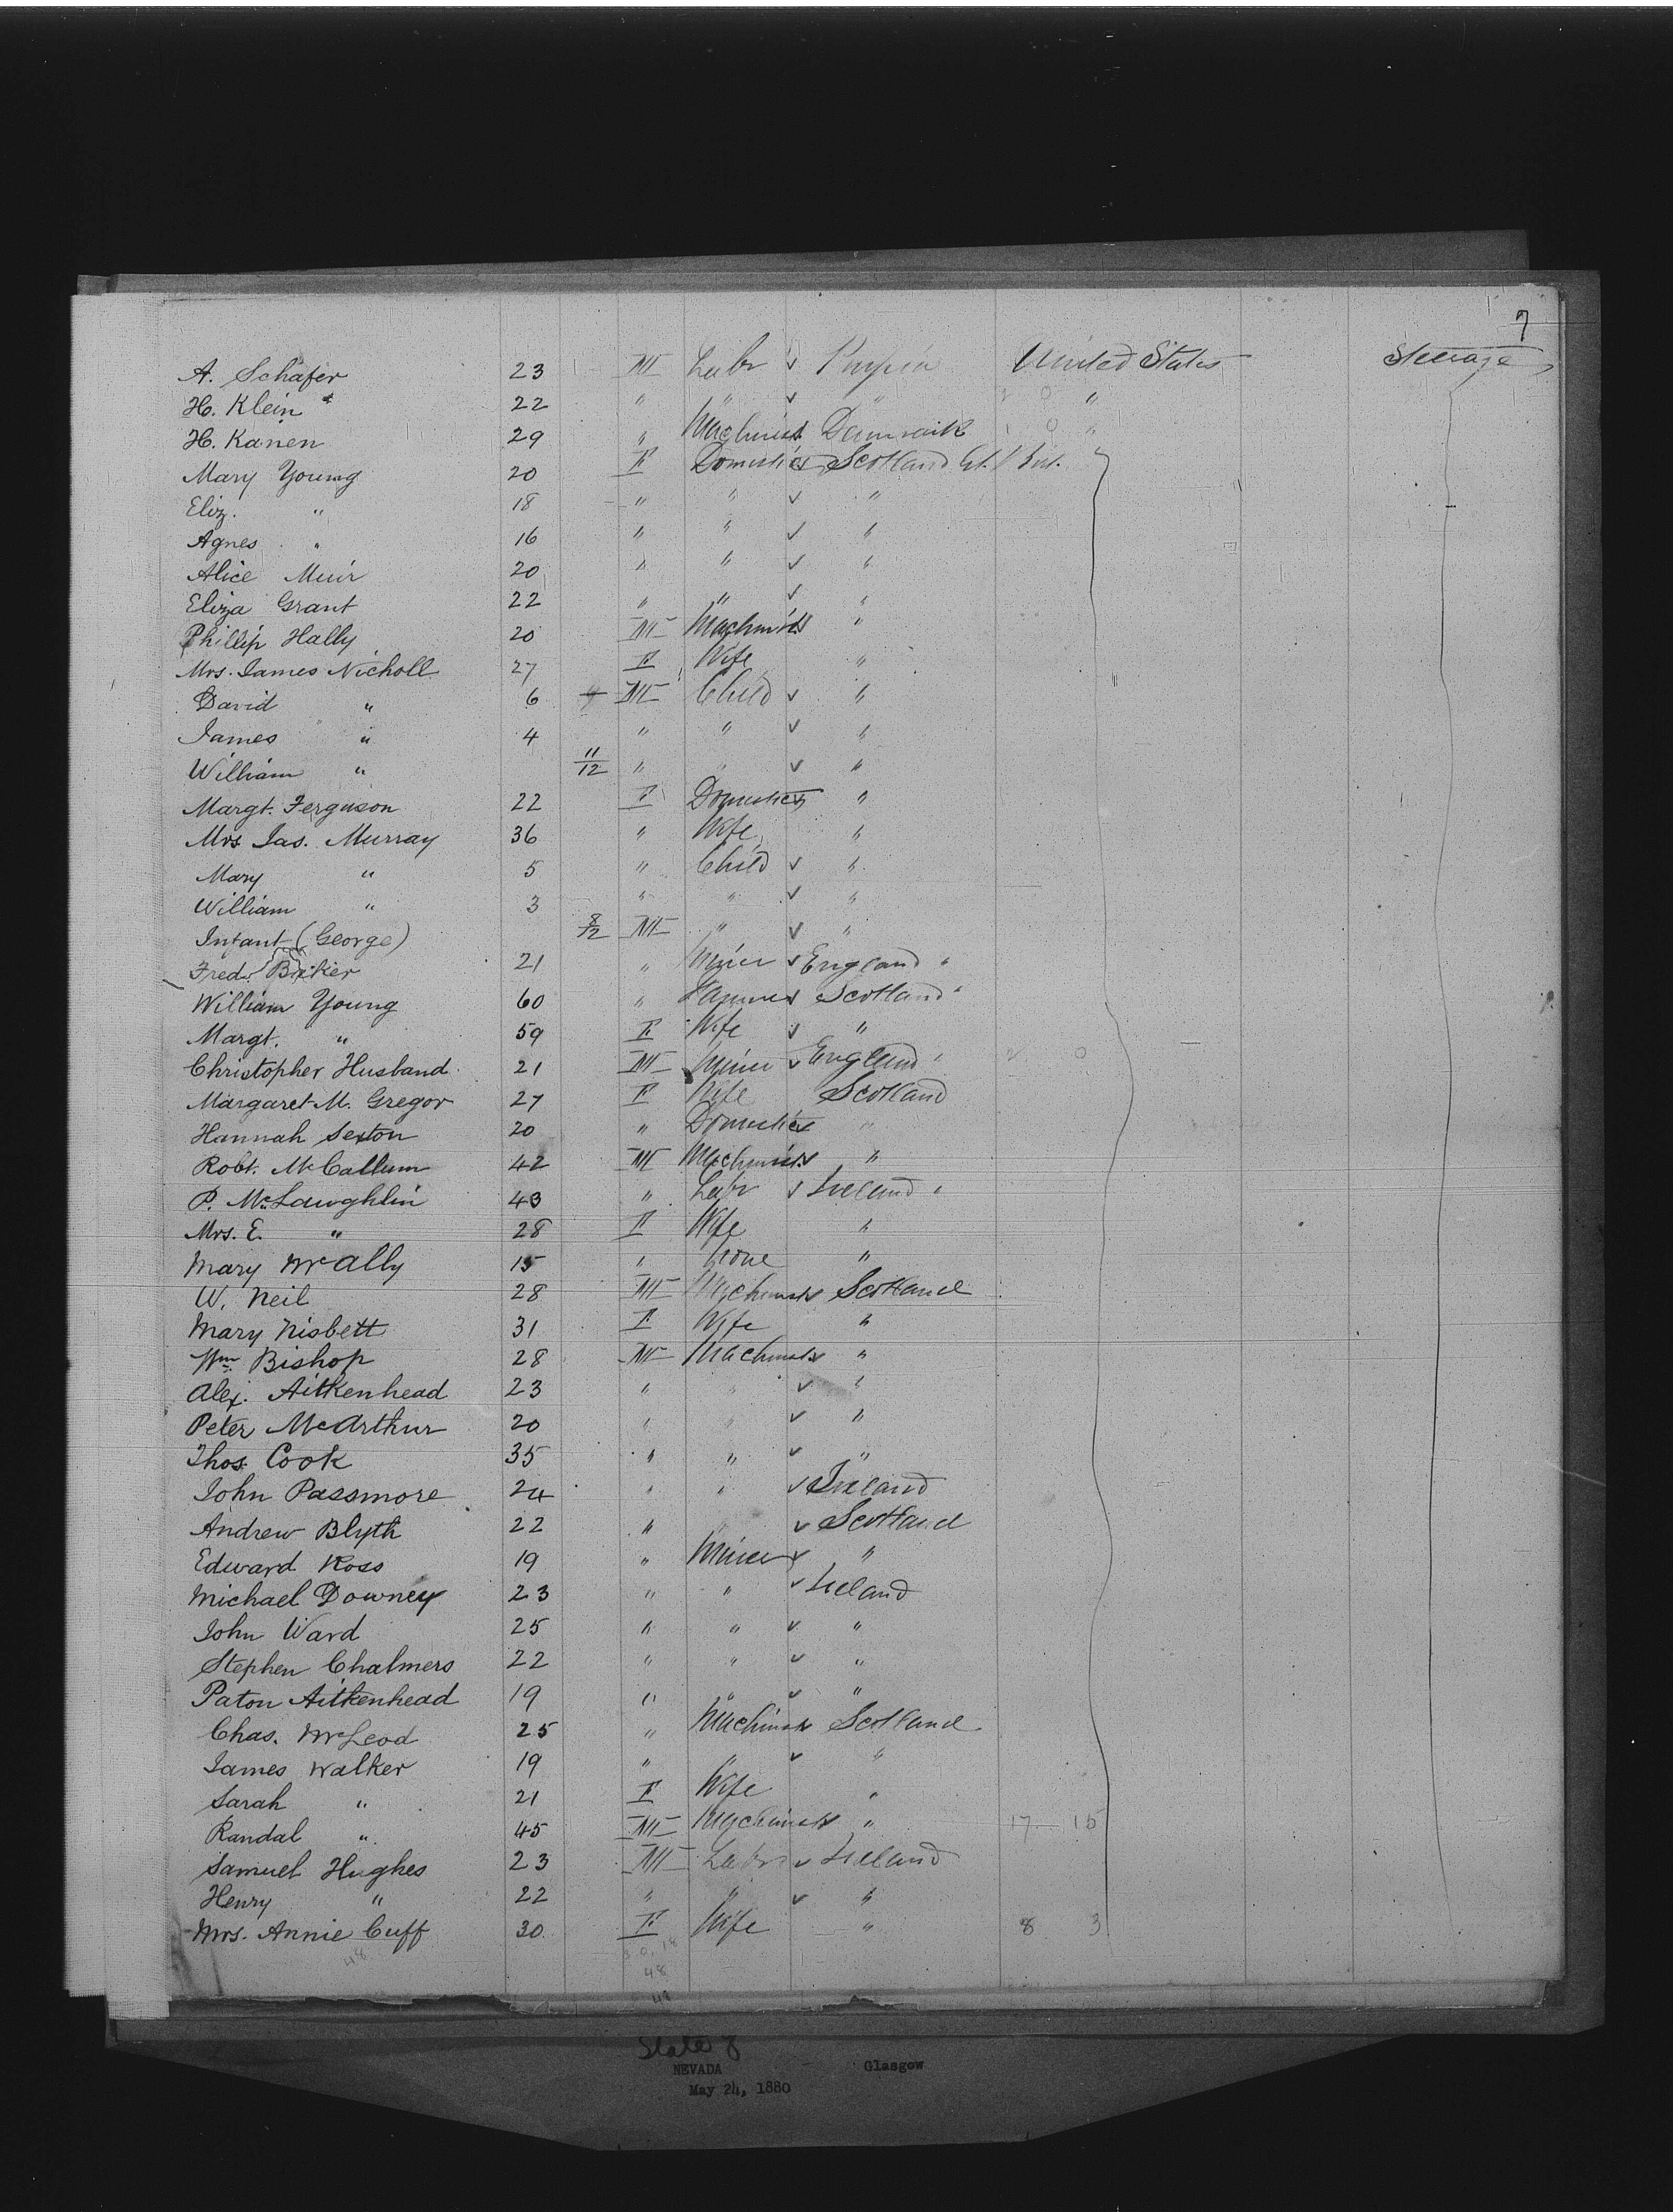 7
A. Schafer 23 M Labr ✓ United States Steerage
H. Klein 22 " " ✓ " "
H. Kanen 29 " Machinist Denmark "
Mary Young 20 F Domestic ✓ Scotland
Eliz. " 18 " " ✓ "
Agnes " 16 " " ✓ "
Alice Muir 20 " " ✓ "
Eliza Grant 22 " " ✓ "
Phillip Hally 20 M Machinist "
Mrs. James Nicholl 27 F Wife "
David " 6 M Child ✓ "
James " 4 " " ✓ "
William " 11/12 " " ✓ "
Margt. Ferguson 22 F Domestic "
Mrs Jas. Murray 36 " Wife "
Mary " 5 " Child ✓ "
William " 3 " " ✓ "
Infant (George) 8/12 M " ✓ "
Fred. 21 " Miner ✓ England "
William Young 60 " Farmer Scotland "
Margt. " 59 F Wife ✓ "
Christopher Husband 21 M Miner ✓ England "
Margaret M. Gregor 27 F Wife Scotland
Hannah Sexton 20 " Domestic "
Robt. McCallum 42 M Machinist "
P. McLaughlin 43 " Labr ✓ Ireland "
Mrs. E. " 28 F Wife "
Mary McAlly 15 " None "
W. Neil 28 M Machinist Scotland
Mary Nisbett 31 F Wife "
Wm. Bishop 28 M Machinist "
Alex. Aitkenhead 23 " " ✓ "
Peter McArthur 20 " " ✓ "
Thos. Cook 35 " " ✓ "
John Passmore 24 " " ✓ Ireland
Andrew Blyth 22 " ✓ Scotland
Edward Ross 19 " Miner ✓ "
Michael Downey 23 " " ✓ Ireland
John Ward 25 " " ✓ "
Stephen Chalmers 22 " " ✓ "
Paton Aitkenhead 19 " " ✓ "
Chas. McLeod 25 " Machinist Scotland
James Walker 19 " " ✓ "
Sarah " 21 F Wife "
Randal " 45 M Machinist " 17 15
Samuel Hughes 23 M Labr ✓ Ireland
Henry " 22 " " ✓ "
Mrs. Annie Cuff 30 F Wife " 8 3
48
48
State of
NEVADA Glasgow
May 24, 1880